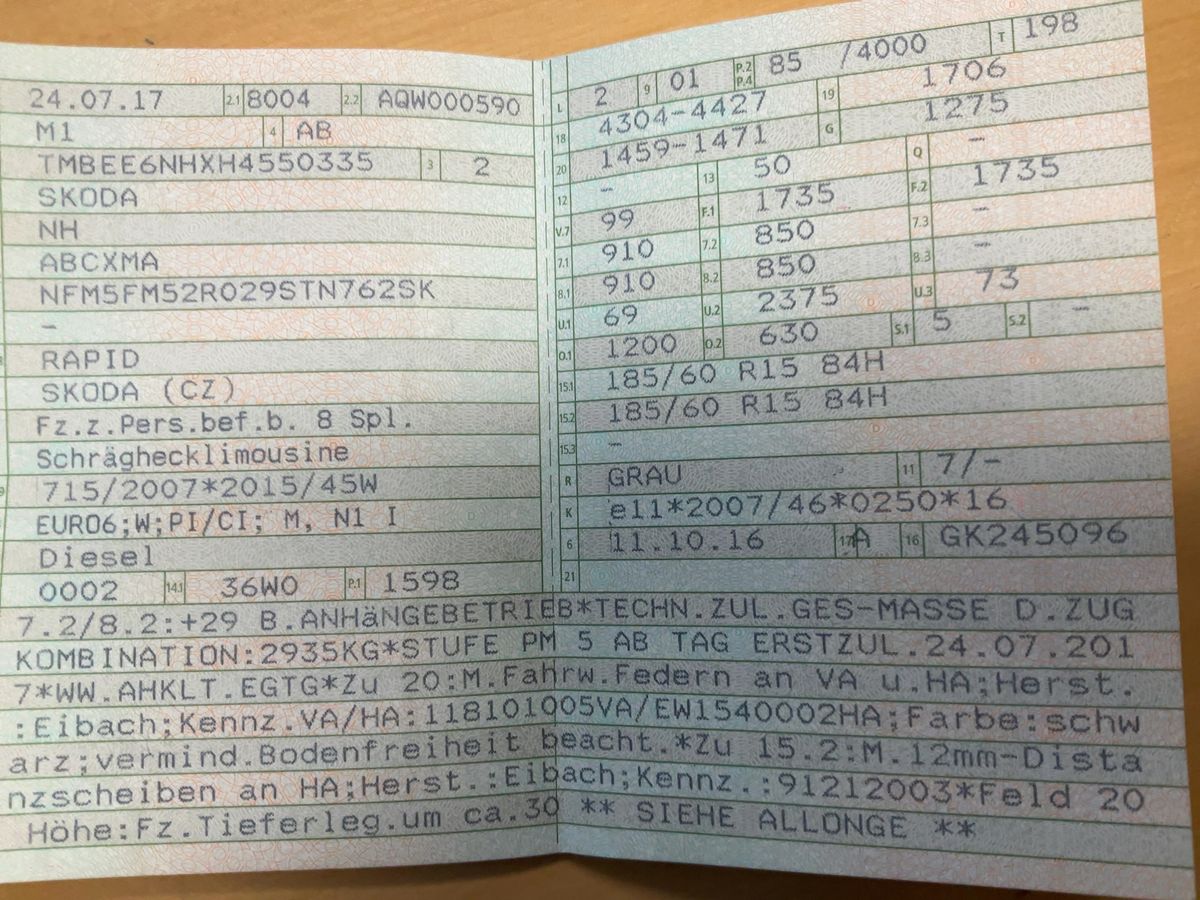 24.07.17 2.1 8004 2.2 AQW000590
M1 4 AB
TMBEE6NHXH4550335 3 2
SKODA
NH
ABCXMA
NFM5FM52R029STN762SK
–
RAPID
SKODA (CZ)
Fz.z.Pers.bef.b. 8 Spl.
Schräghecklimousine
715/2007*2015/45W
EURO6;W;PI/CI; M, N1 I
Diesel
0002 14.1 36W0 P.1 1598
L 2 9 01 P.2 P.4 85 /4000 T 198
18 4304-4427 19 1706
20 1459-1471 G 1275
12 – 13 50 Q –
V.7 99 F.1 1735 F.2 1735
7.1 910 7.2 850 7.3 –
8.1 910 8.2 850 8.3 –
U.1 69 U.2 2375 U.3 73
O.1 1200 O.2 630 S.1 5 S.2 –
15.1 185/60 R15 84H
15.2 185/60 R15 84H
15.3 –
R GRAU 11 7/-
K e11*2007/46*0250*16
6 11.10.16 17 A 16 GK245096
21
7.2/8.2:+29 B.ANHäNGEBETRIEB*TECHN.ZUL.GES-MASSE D.ZUG
KOMBINATION:2935KG*STUFE PM 5 AB TAG ERSTZUL.24.07.201
7*WW.AHKLT.EGTG*Zu 20:M.Fahrw.Federn an VA u.HA;Herst.
:Eibach;Kennz.VA/HA:118101005VA/EW1540002HA;Farbe:schw
arz;vermind.Bodenfreiheit beacht.*Zu 15.2:M.12mm-Dista
nzscheiben an HA;Herst.:Eibach;Kennz.:91212003*Feld 20
Höhe:Fz.Tieferleg.um ca.30 ** SIEHE ALLONGE **